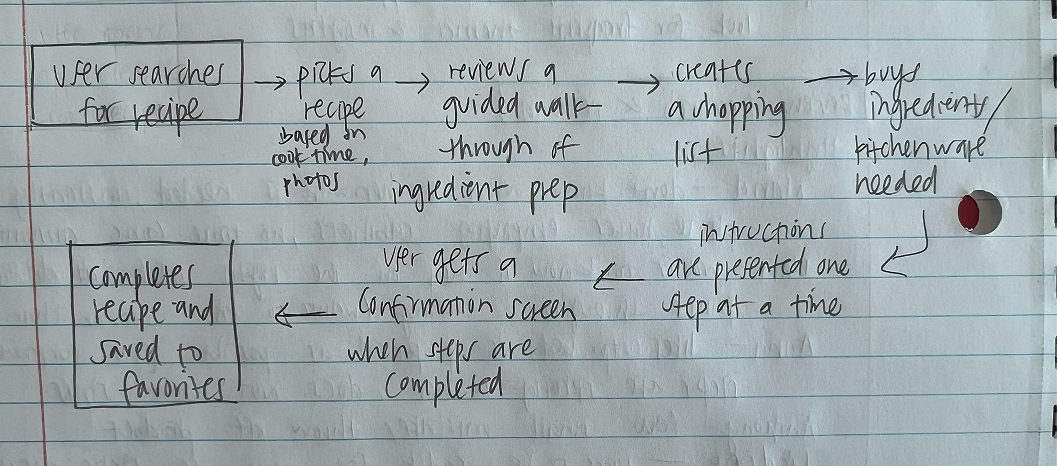 User searches
for recipe
→ picks a
recipe
based on
cook time,
photos
→ reviews a
guided walk-
through of
ingredient prep
→ creates
a shopping
list
→ buys
ingredients/
kitchenware
needed
intructions
are presented one
step at a time
← User gets a
confirmation screen
when steps are
completed
← completes
recipe and
saved to
favorites